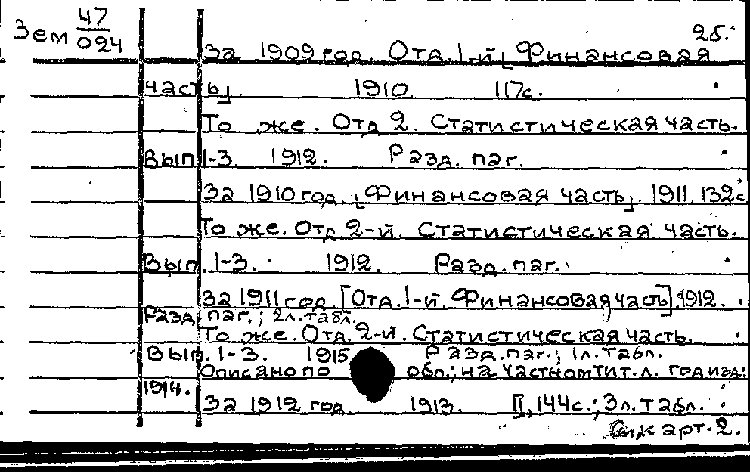 Зем 47/024
25.
За 1909 год. Отд. 1-й [Финансовая
часть] 1910. 117с.
То же. Отд 2. Статистическая часть.
Вып. 1-3. 1912. Разд. паг.
За 1910 год. [Финансовая часть] 1911. 132с.
То же. Отд 2-й. Статистическая часть.
Вып. 1-3. 1912. Разд. паг.
За 1911 год. [Отд. 1-й. Финансовая часть]. 1912.
Разд. паг.; 2л. табл.
То же. Отд. 2-й. Статистическая часть.
Вып. 1-3. 1915 Разд. паг.; 1л. табл.
Описано по обл.; на частном тит. л. год изд:
1914.
За 1912 год. 1913. II, 144с.; 3л. табл.
См. карт. 2.